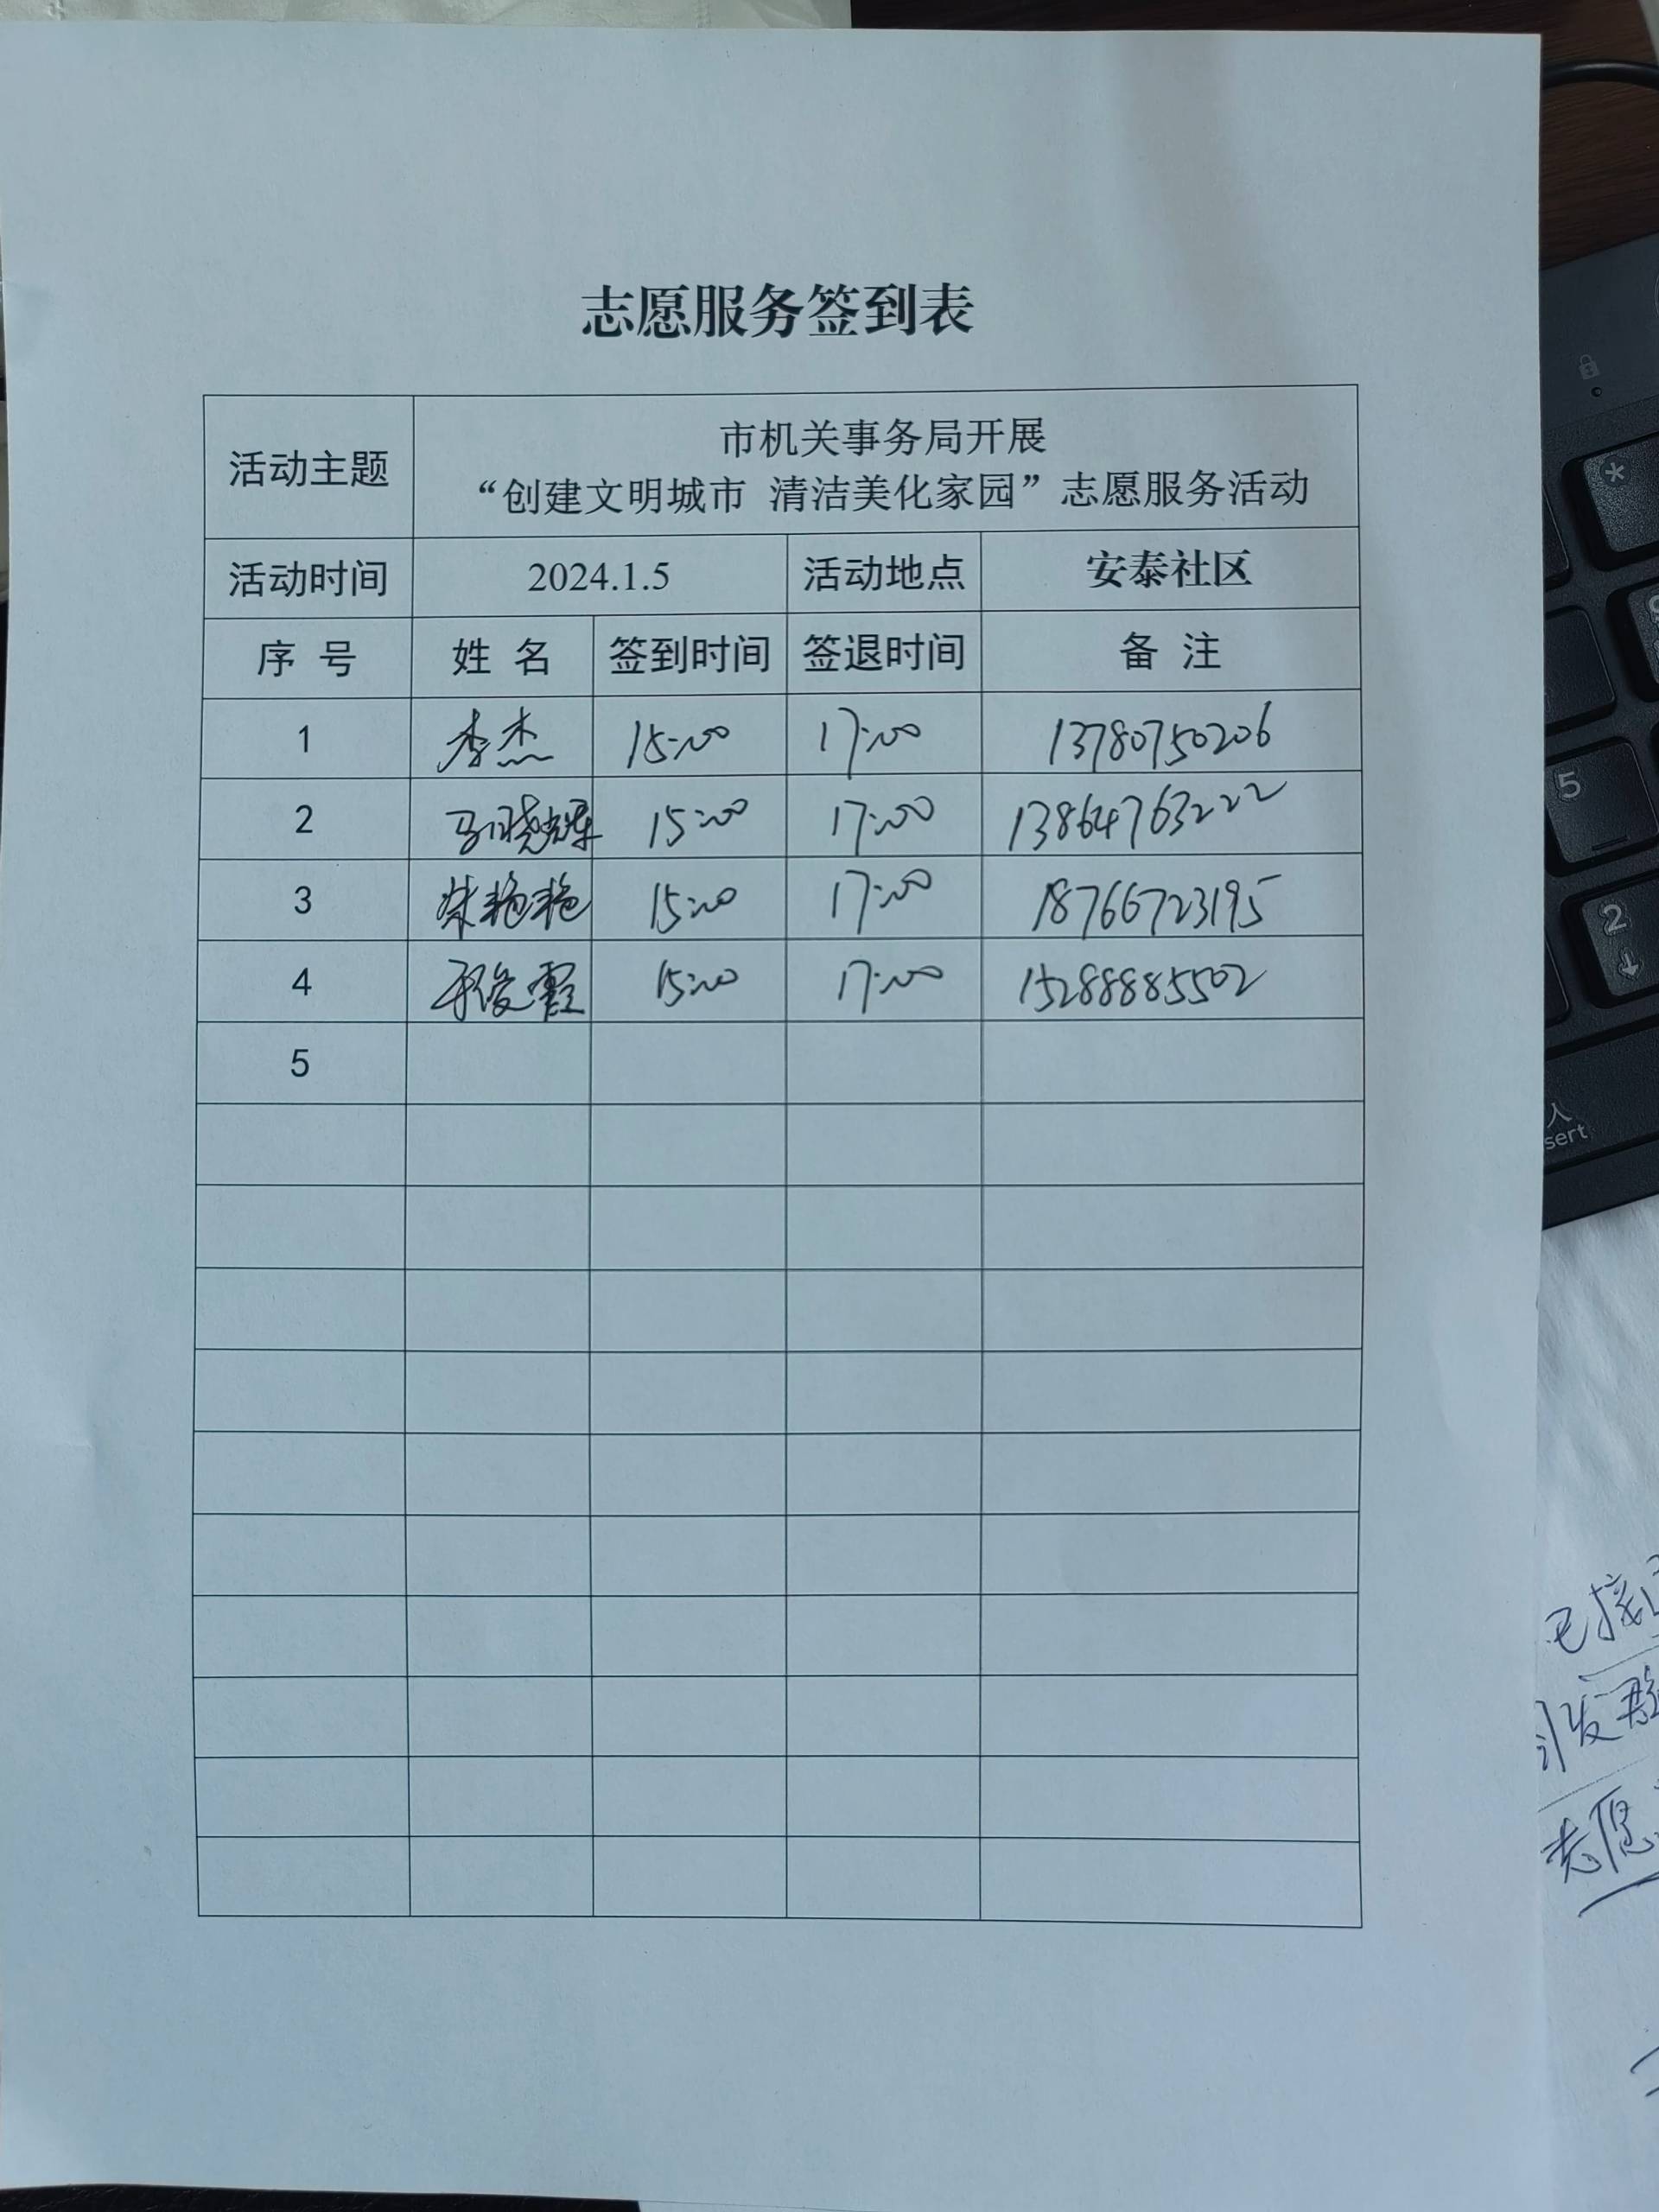 志愿服务签到表
活动主题
市机关事务局开展
“创建文明城市 清洁美化家园”志愿服务活动
活动时间 2024.1.5 活动地点 安泰社区
序 号 姓 名 签到时间 签退时间 备 注
1 李杰 15:00 17:00 13780750206
2 马晓辉 15:00 17:00 13864763222
3 艳艳 15:00 17:00 18766723195
4 俊霞 15:00 17:00 15288885502
5
*
5
2
sert
已接
发群
志愿